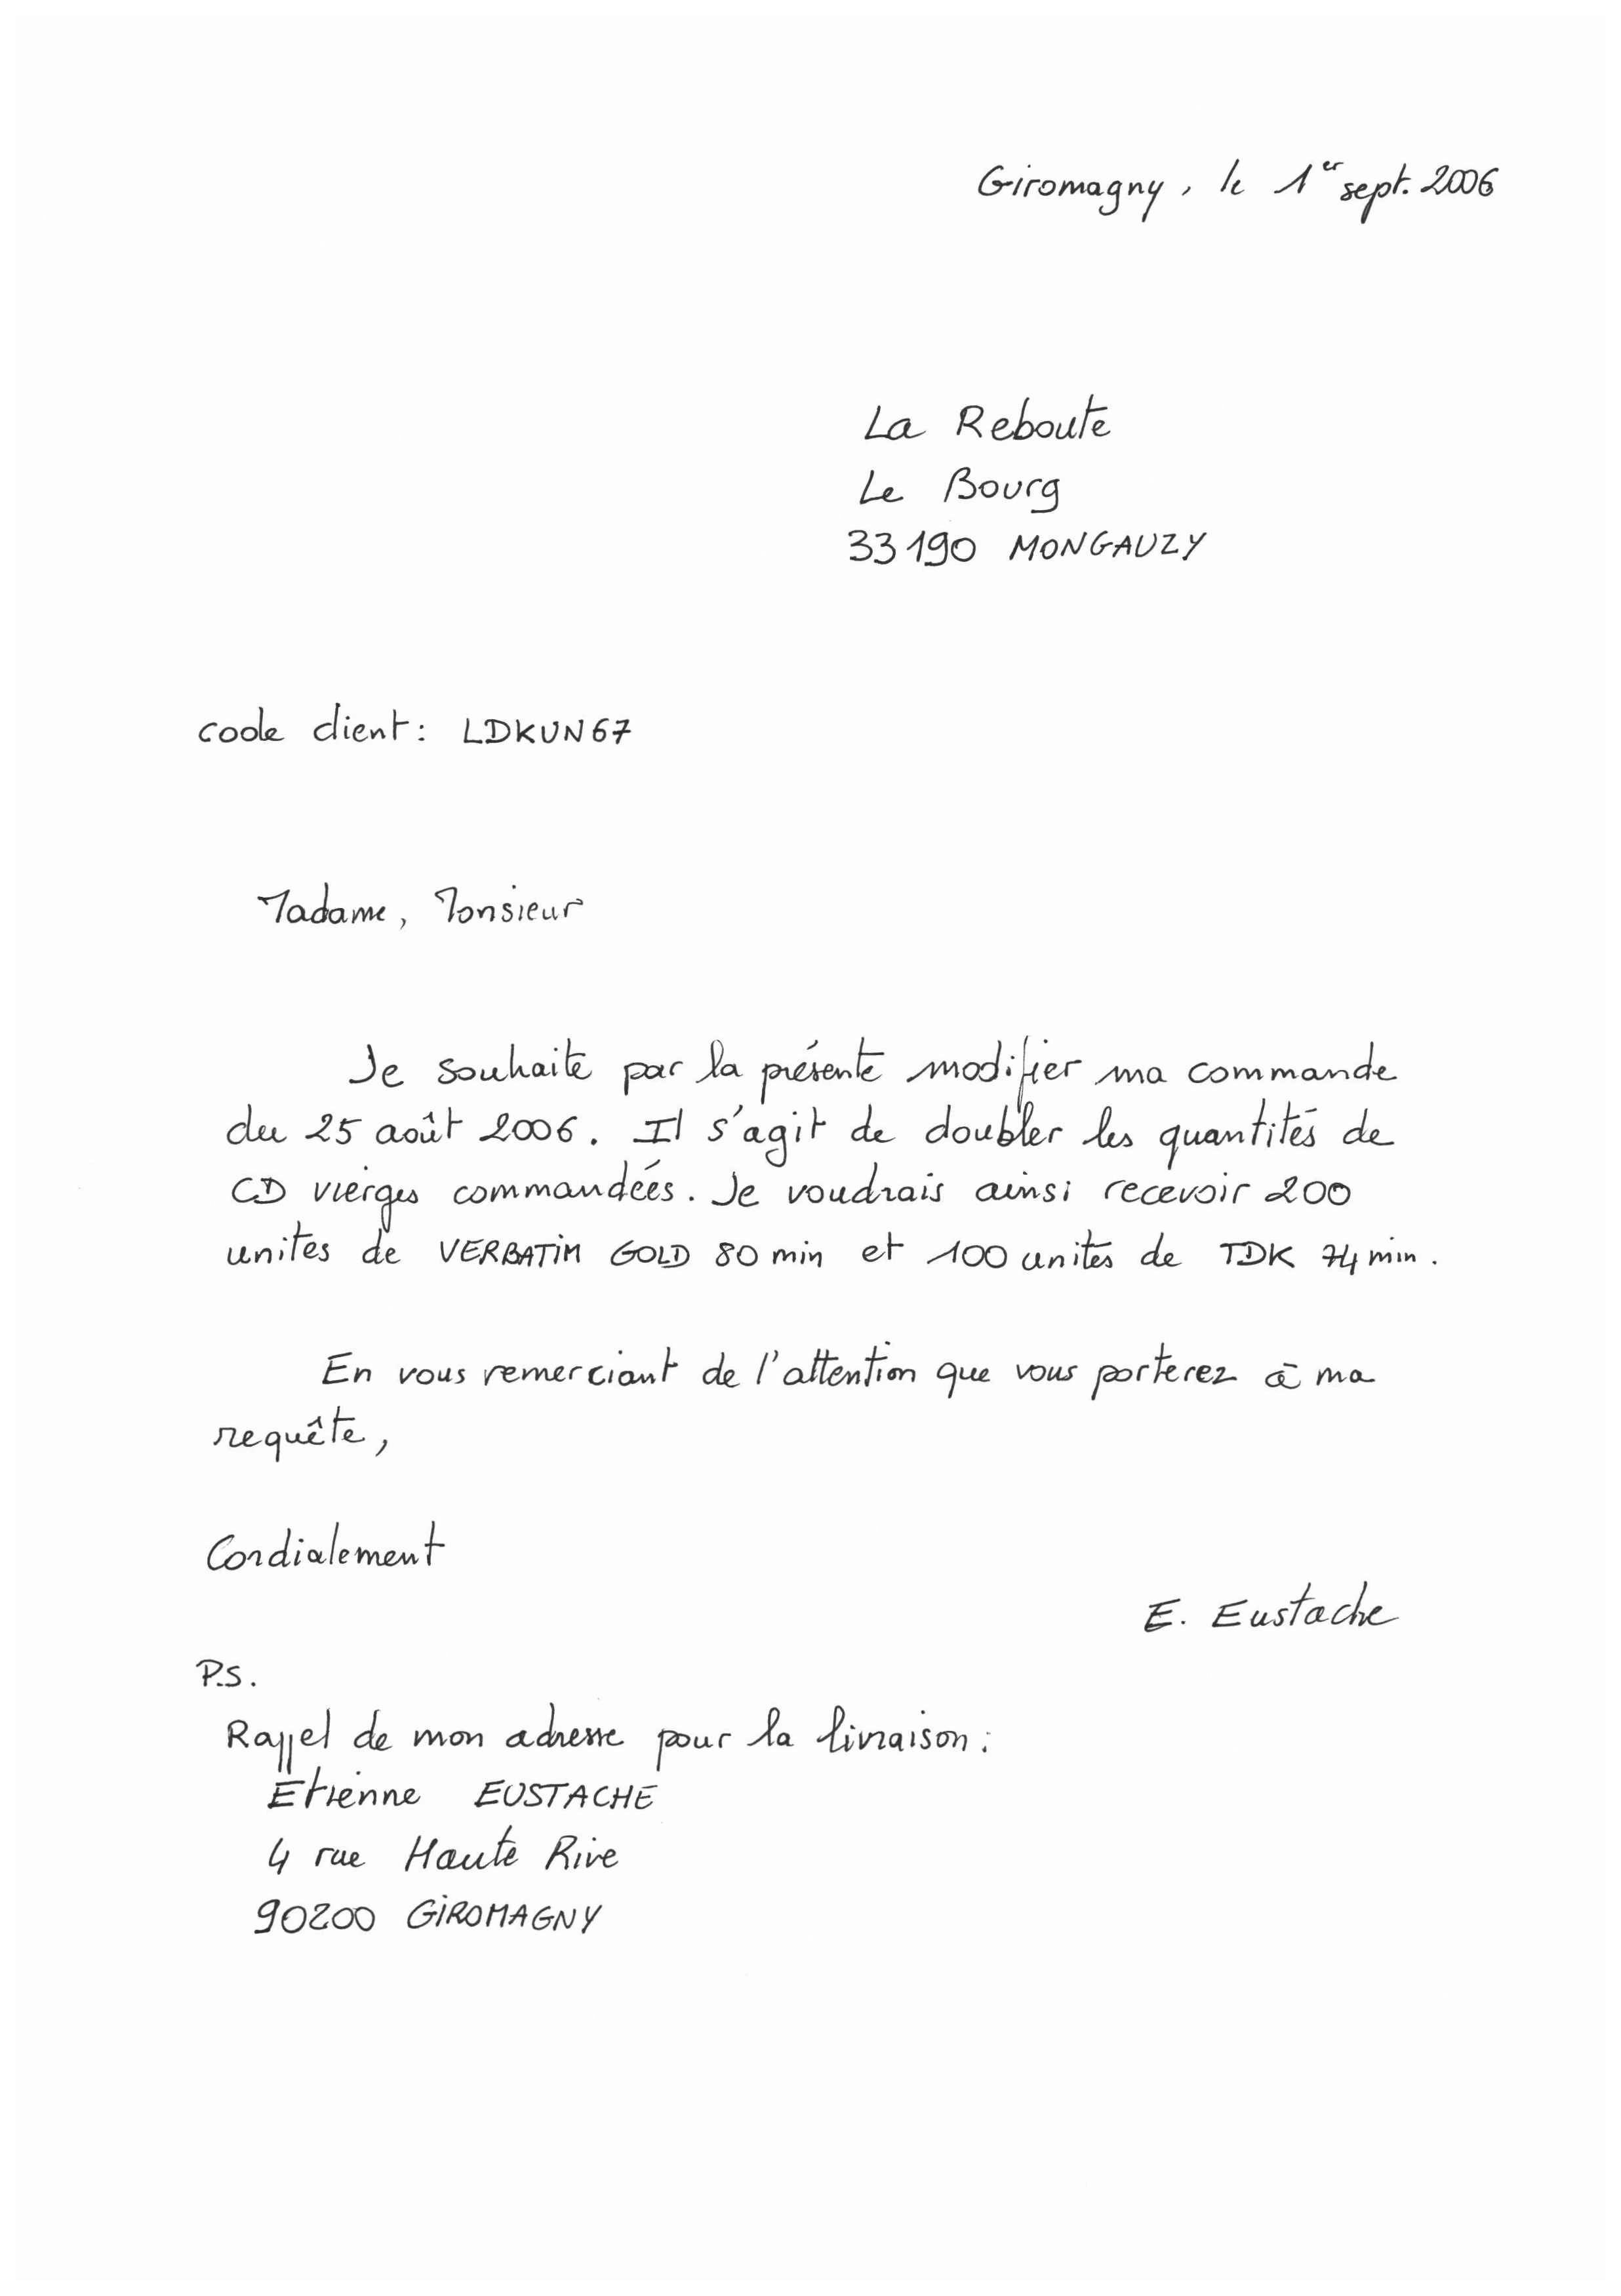 Giromagny, le 1er sept. 2006
La Reboute
Le Bourg
33190 MONGAUZY
code client: LDKUN67
Madame, Monsieur
Je souhaite par la présente modifier ma commande
du 25 août 2006. Il s'agit de doubler les quantités de
CD vierges commandées. Je voudrais ainsi recevoir 200
unites de VERBATIM GOLD 80 min et 100 unites de TDK 74 min.
En vous remerciant de l'attention que vous porterez à ma
requête,
Cordialement
E. Eustache
P.S.
Rappel de mon adresse pour la livraison:
Etienne EUSTACHE
4 rue Haute Rive
90200 GIROMAGNY